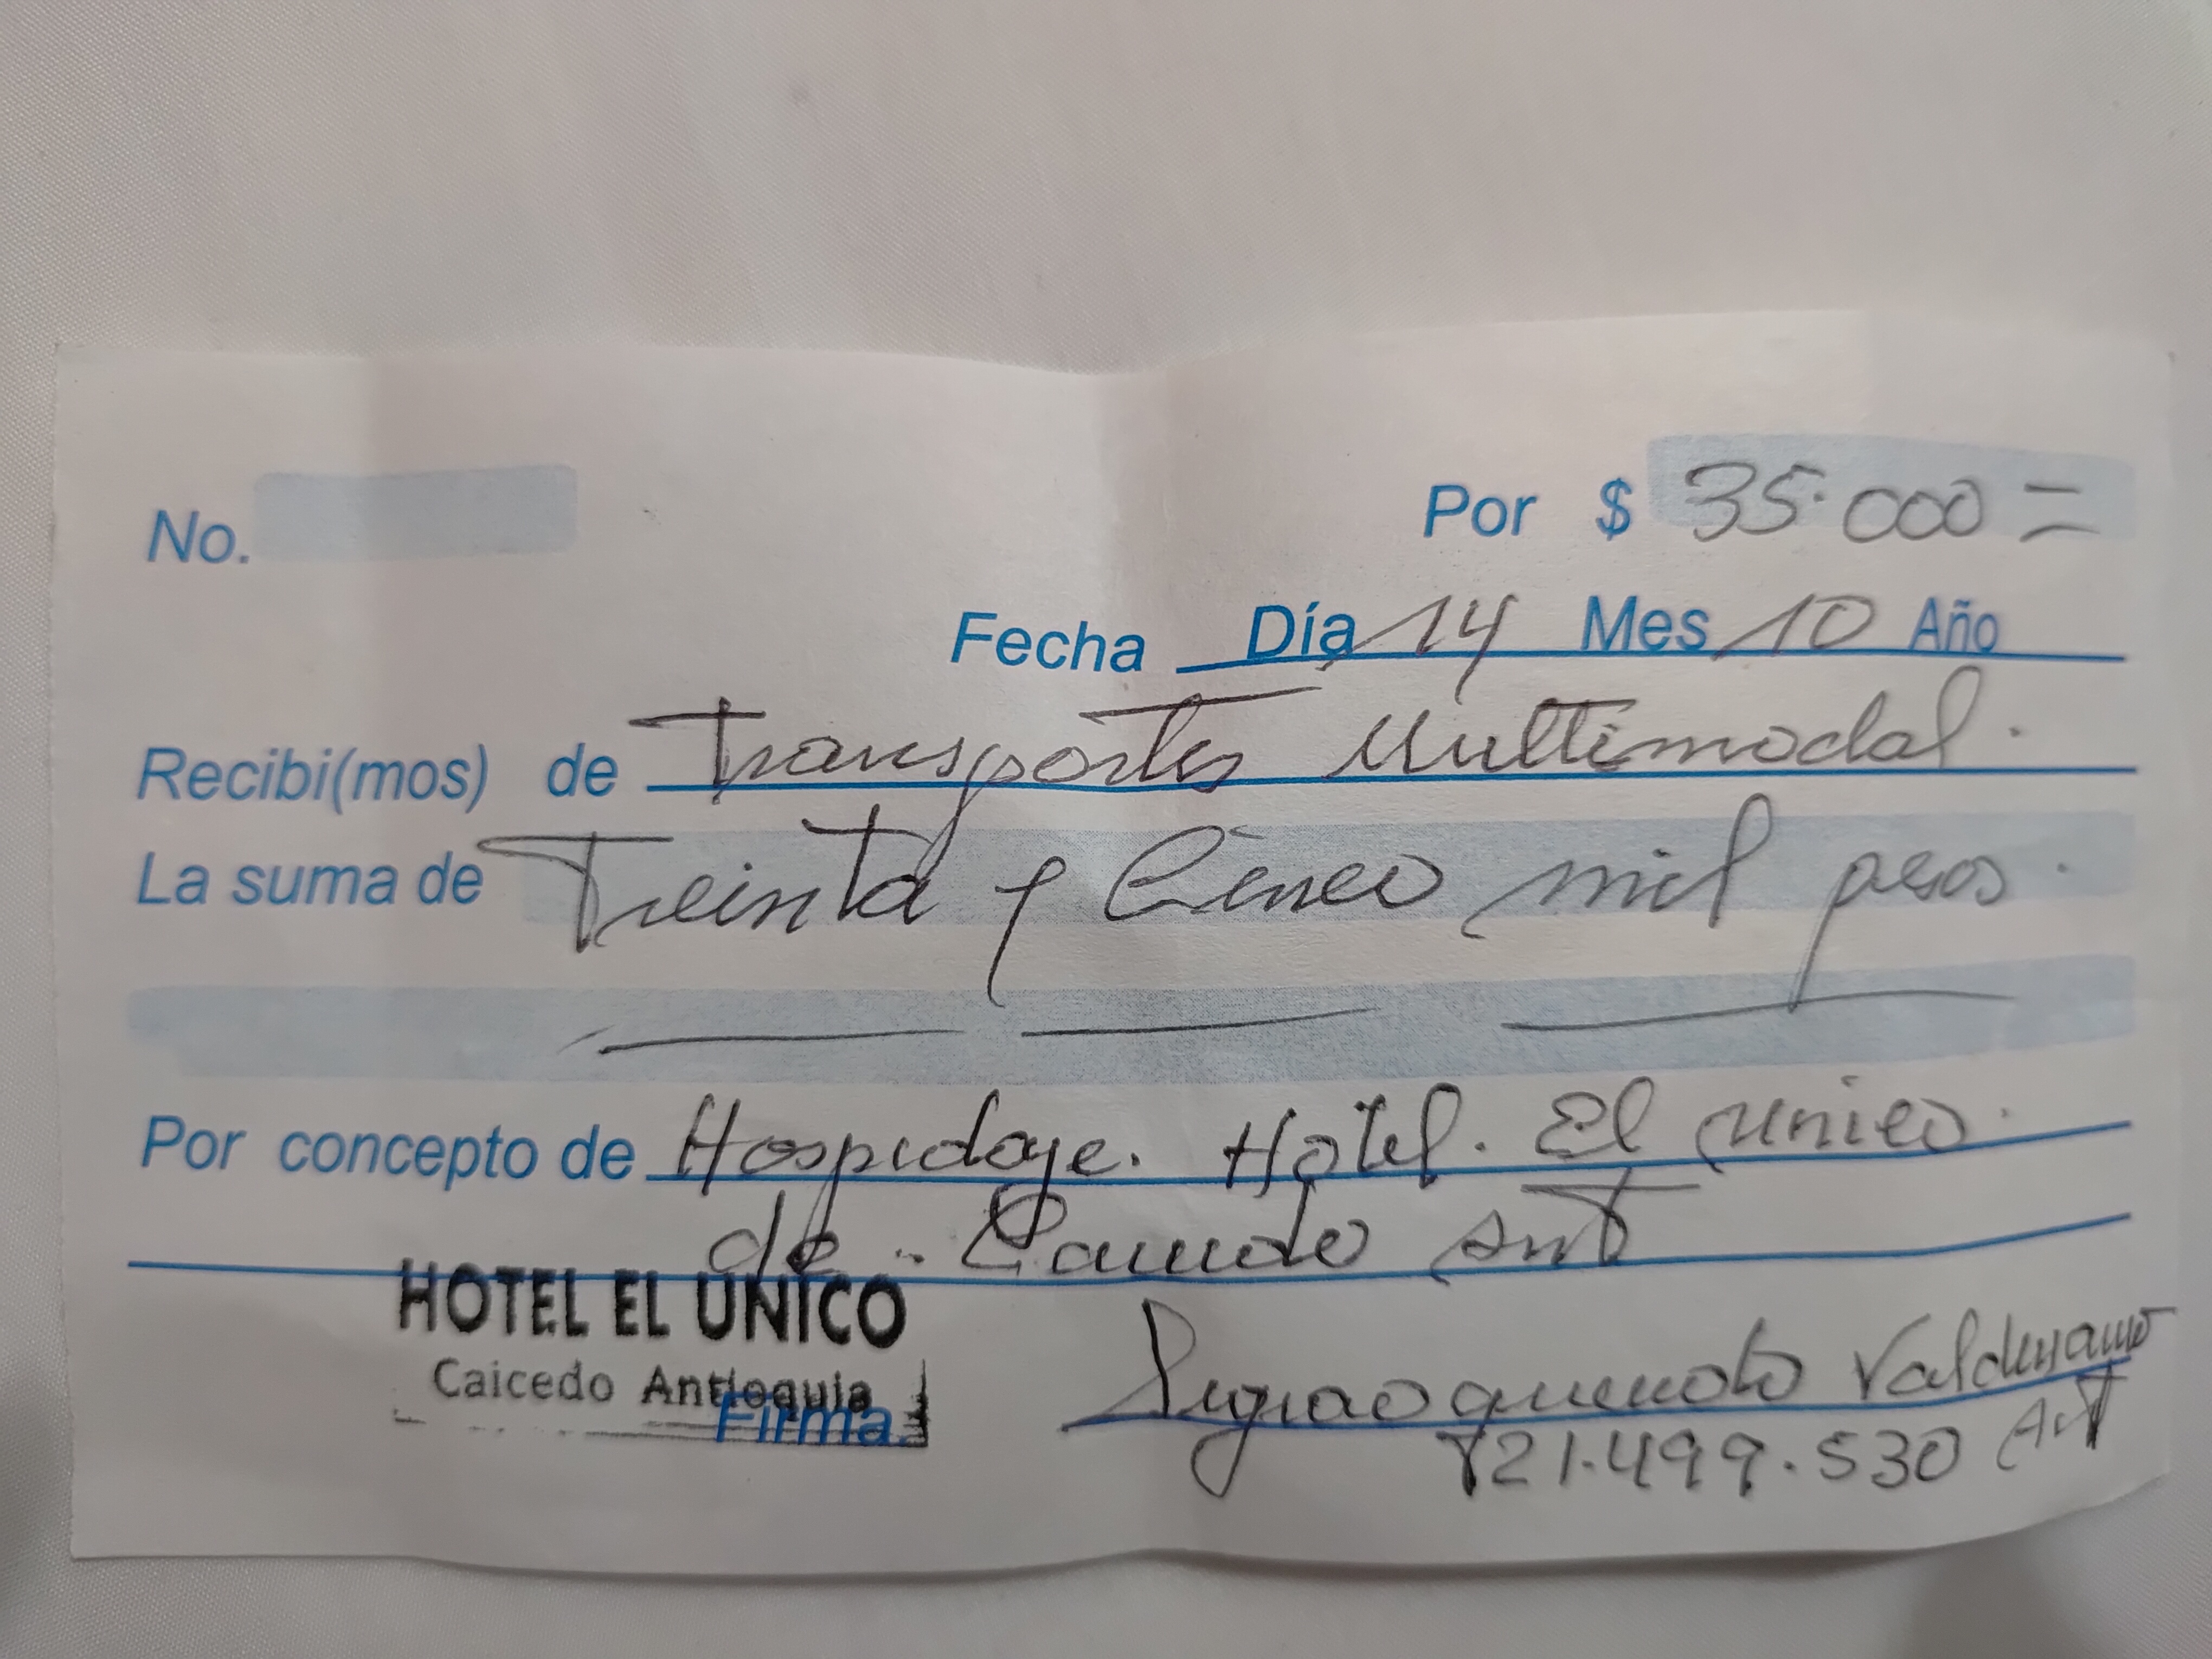 No.
Por $ 35.000 =
Fecha Día 14 Mes 10 Año
Recibi(mos) de Transportes Multimodal.
La suma de Treinta y Cinco mil pesos.
Por concepto de Hospedaje. Hotel. El unico.
de. Caicedo Ant
HOTEL EL UNICO
Caicedo Antioquia
Firma
Valderrama
21.499.530 Ant